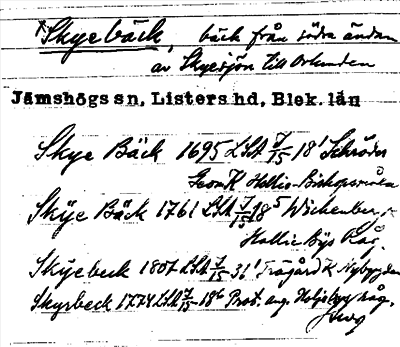 Skyebäck, bäck från södra ändan
av Skyesjön till Orlunden
Jämshögs sn, Listers hd, Blek. län
Skye Bäck 1695 LSA 7/15 18¹ Schröder
GeomK Hallie-Bishopsmåla
Skÿe Bäck 1761 LSA 7/15 18⁵ Wichenberg
Hallie Bys
Skÿebeck 1807 LSA 7/15 31¹ Frågård K Nybygden
Skysbeck 1774 LSA 7/15 18⁶ Prot. ang.